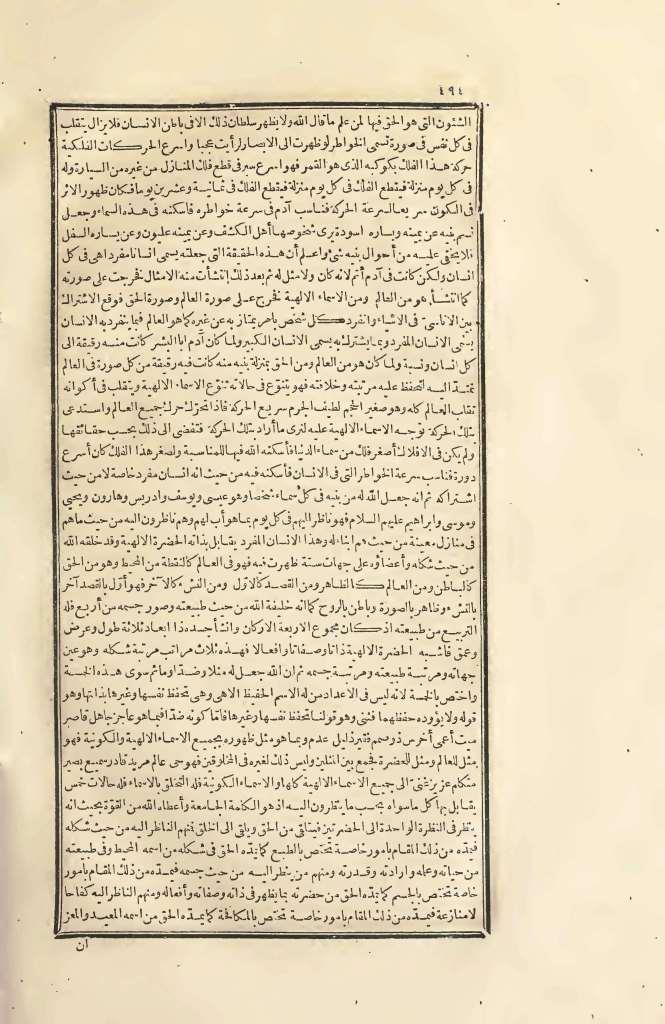 ٤٩٤
الشئون التى هو الحق فيها لمن علم ما قال الله ولا يظهر سلطان ذلك الا فى باطن الانسان فلا يزال يتقلب
فى كل نفس فى صورة تسمى الخواطر لو ظهرت الى الابصار لرأيت عجبا واسرع الحركات الفلكية
حركة هذا الفلك بكوكبه الذى هو القمر فهو اسرع سير فى قطع فلك المنازل من غيره من السيارة وله
فى كل يوم منزلة فيقطع الفلك فى كل يوم منزلة فيقطع الفلك فى ثمانية وعشرين يوما فكان ظهور الاثر
فى الكون سريعا لسرعة الحركة فناسب آدم فى سرعة خواطره فاسكنه فى هذه السماء وجعل
نسم بنيه عن يمينه ويساره اسودة يرى شخوصها أهل الكشف وعن يمينه عليون وعن يساره السفل
فلا يخفى عليه من أحوال بنيه شئ واعلم أن هذه الحقيقة التى جعلته يسمى انسانا مفردا هى فى كل
انسان ولكن كانت فى آدم أتم لانه كان ولا مثل له ثم بعد ذلك انتشأت منه الامثال فخرجت على صورته
كما انتشأ هو من العالم ومن الاسماء الالهية فخرج على صورة العالم وصورة الحق فوقع الاشتراك
بين الاناسى فى الاشياء وانفرد كل شخص بأمر يمتاز به عن غيره كما هو العالم فيما ينفرد به الانسان
يسمى الانسان المفرد وبما يشترك به يسمى الانسان الكبير ولما كان آدم ابا البشر كانت منه رقيقة الى
كل انسان ونسبة ولما كان هو من العالم ومن الحق بمنزلة بنيه منه كانت فيه رقيقة من كل صورة فى العالم
تمتد اليه لتحفظ عليه مرتبته وخلافته فهو يتنوع فى حالاته تنوع الاسماء الالهية ويتقلب فى أكوانه
تقلب العالم كله وهو صغير الحجم لطيف الجرم سريع الحركة فاذا تحرك حرك جميع العالم واستدعى
بتلك الحركة توجه الاسماء الالهية عليه لترى ما أراد بتلك الحركة فتقضى الى ذلك بحسب حقائقها
ولم يكن فى الافلاك أصغر فلك من سماء الدنيا فأسكنه الله فيها للمناسبة ولصغر هذا الفلك كان أسرع
دورة فناسب سرعة الخواطر التى فى الانسان فأسكنه فيه من حيث انه انسان مفرد خاصة لا من حيث
اشتراكه ثم انه جعل الله له من بنيه فى كل سماء شخصا وهو عيسى ويوسف وادريس وهارون ويحيى
وموسى وابراهيم عليهم السلام فهو ناظر اليهم فى كل يوم بما هو أب لهم وهم ناظرون اليه من حيث ما هم
فى منازل معينة من حيث هم ابناء له وهذا الانسان المفرد يقابل بذاته الحضرة الالهية وقد خلقه الله
من حيث شكله وأعضاؤه على جهات ستة ظهرت فيه فهو فى العالم كالنقطة من المحيط وهو من الحق
كالباطن ومن العالم كالظاهر ومن القصد كالاول ومن النشء كالآخر فهو أول بالقصد آخر
بالنشء وظاهر بالصورة وباطن بالروح كما انه خليفة الله من حيث طبيعته وصور جسمه من أربع فله
التربيع من طبيعته اذ كان مجموع الاربعة الاركان وانشأ جسده ذا ابعاد ثلاثة طول وعرض
وعمق فأشبه الحضرة الالهية ذاتا وصفاتا وافعالا فهذه ثلاث مراتب مرتبة شكله وهو عين
جهاته ومرتبة طبيعته ومرتبة جسمه ثم ان الله جعل له مثلا وضدا وما ثم سوى هذه الخمسة
واختص بالخمسة لانه ليس فى الاعداد من له الاسم الحفيظ الا هى وهى تحفظ نفسها وغيرها بذاتها وهو
قوله ولا يؤوده حفظهما فثنى وهو قولنا تحفظ نفسها وغيرها فاما كونه ضدا فبما هو عاجز جاهل قاصر
ميت أعمى أخرس ذو صمم فقير ذليل عدم وبما هو مثل ظهوره بجميع الاسماء الالهية والكونية فهو
مثل للعالم ومثل للحضرة فجمع بين المثلين وليس ذلك لغيره فى المخلوقين فهو حى عالم مريد قادر سميع بصير
متكلم عزيز غنى الى جميع الاسماء الالهية كلها والاسماء الكونية فله التخلق بالاسماء فله حالات خمس
يقابل بها كل ما سواه بحسب ما ينظرون اليه اذ هو الكلمة الجامعة وأعطاه الله من القوة بحيث انه
ينظر فى النظرة الواحدة الى الحضرتين فيتلقى من الحق ويلقى الى الخلق فمنهم الناظر اليه من حيث شكله
فيمده من ذلك المقام بأمور خاصة تختص بالطبع كما يمده الحق فى شكله من اسمه المحيط وفى طبيعته
من حياته وعلمه وارادته وقدرته ومنهم من ينظر اليه من حيث جسمه فيمده من ذلك المقام بأمور
خاصة تختص بالجسم كما يمده الحق من حضرته بما يظهر فى ذاته وصفاته وأفعاله ومنهم الناظر اليه كفاحا
لا منازعة فيمده من ذلك المقام بأمور خاصة تختص بالمكافحة كما يمده الحق من اسمه المعيد والمعز
ان